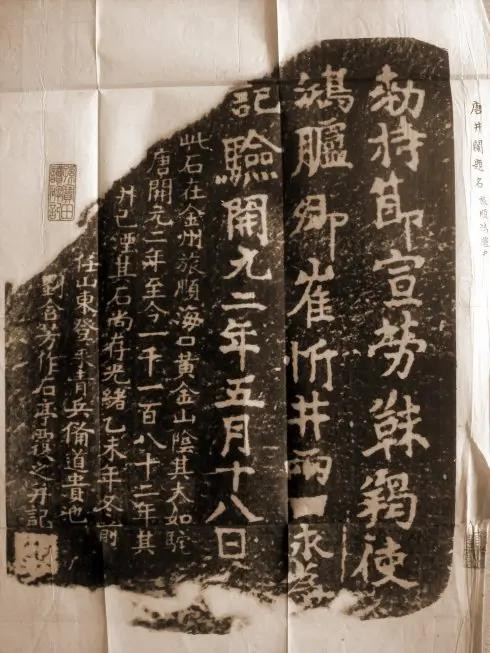 唐井闌題名 旅順
勅持節宣勞靺羯使
鴻臚卿崔忻井兩口永為
記驗開元二年五月十八日
此石在金州旅順海口黃金山陰其大如駝
唐開元二年至今一千一百八十二年其
井已湮其石尚存光緒乙未年冬前
任山東登萊青兵備道貴池
劉含芳作石亭覆之并記